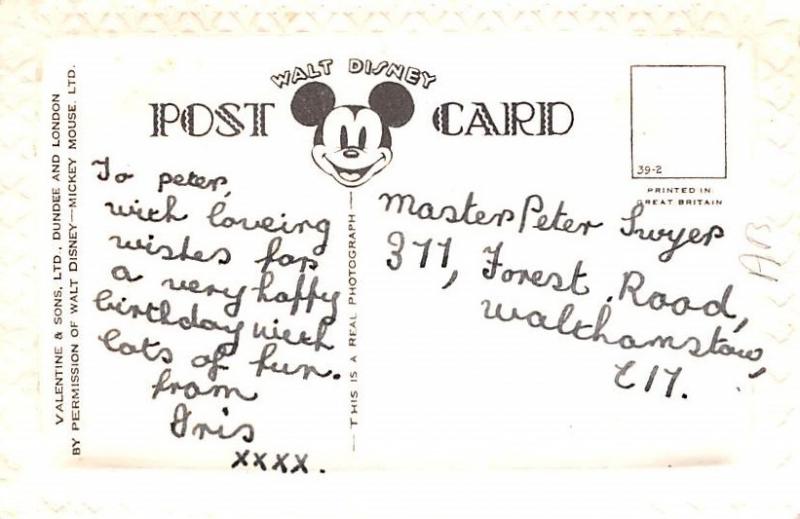 WALT DISNEY
POST CARD
39-2
PRINTED IN
GREAT BRITAIN
VALENTINE & SONS, LTD., DUNDEE AND LONDON
BY PERMISSION OF WALT DISNEY—MICKEY MOUSE. LTD.
To peter,
with loveing
wishes for
a very happy
birthday with
lots of fun.
from
Iris
xxxx.
— THIS IS A REAL PHOTOGRAPH —
Master Peter Swyer
377, Forest Road,
Walthamstow,
E17.
AB